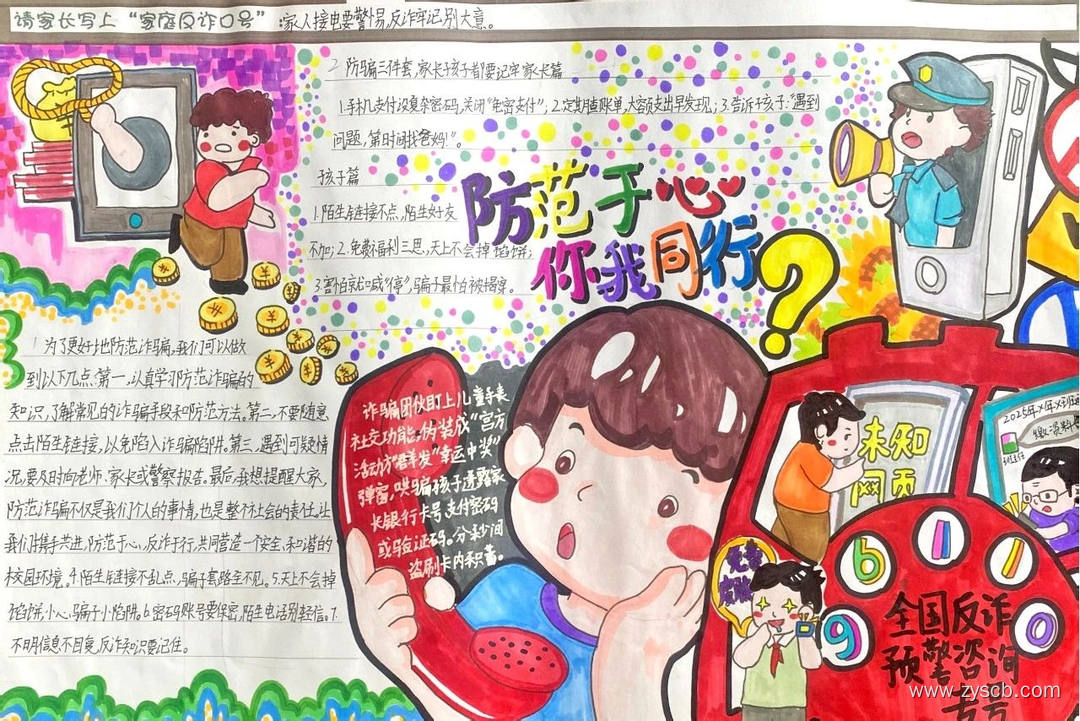 请家长写上“家庭反诈口号”:家人接电要警惕,反诈牢记别大意。
2.防骗三件套,家长子孩子都要记牢家长篇
1.手机支付设复杂密码,关闭“免密支付”;2.定期查账单,大额支出早发现;3.告诉孩子:“遇到
问题,第一时间找爸妈!”。
孩子篇
1.陌生链接不点,陌生好友
不加;2.免费福利三思,天上不会掉馅饼;
3.害怕就喊“停”,骗子最怕被揭穿。
防范于心
你我同行?
为了更好地防范诈骗,我们可以做
到以下几点、第一,认真学习防范诈骗的
知识,了解常见的诈骗手段和防范方法。第二,不要随意
点击陌生链接,以免陷入诈骗陷阱。第三,遇到可疑情
况,要及时向老师、家长或警察报告。最后,我想提醒大家,
防范诈骗不仅是我们个人的事情,也是整个社会的责任,让
我们携手共进,防范于心,反诈于行,共同营造一个安全、和谐的
校园环境。4.陌生链接不乱点,骗子套路全不见。5.天上不会掉
馅饼,小心骗子小陷阱。6.密码账号要保密,陌生电话别轻信。7.
不明信息不回复,反诈知识要记住。
诈骗团伙盯上儿童手表
社交功能,伪装成“官方
活动方”群发“幸运中奖”
弹窗,哄骗孩子透露家
长银行卡号、支付密码
或验证码。分秒间
盗刷卡内积蓄。
未知
网页
2025年X月X班
缴资料费
免费
皮肤
9 6 1 1 0
全国反诈
预警咨询
专号
www.zyscb.com